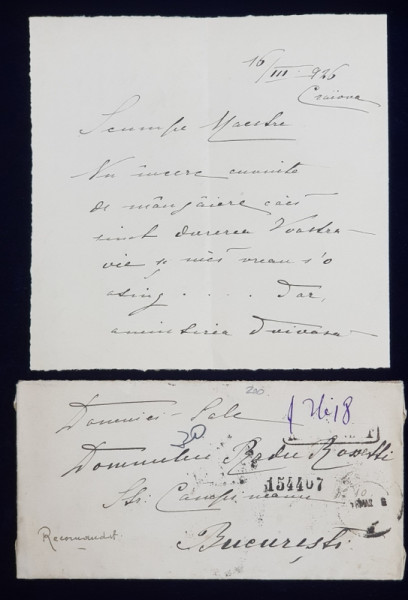 16/III 926
Craiova
Scumpe Maestre
Nu încerc cuvinte
de mângâiere căci
simt durerea Voastră
vie și nici vreau s'o
ating . . . . Dar,
amintirea
200
Domniei-Sale
Domnului Radu Rosetti
154407
Str. Câmpineanu
Recomandat
București